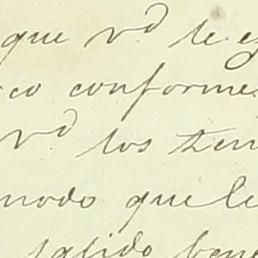 que vd le e
co conforme
vd los ten
modo que le
salido bene